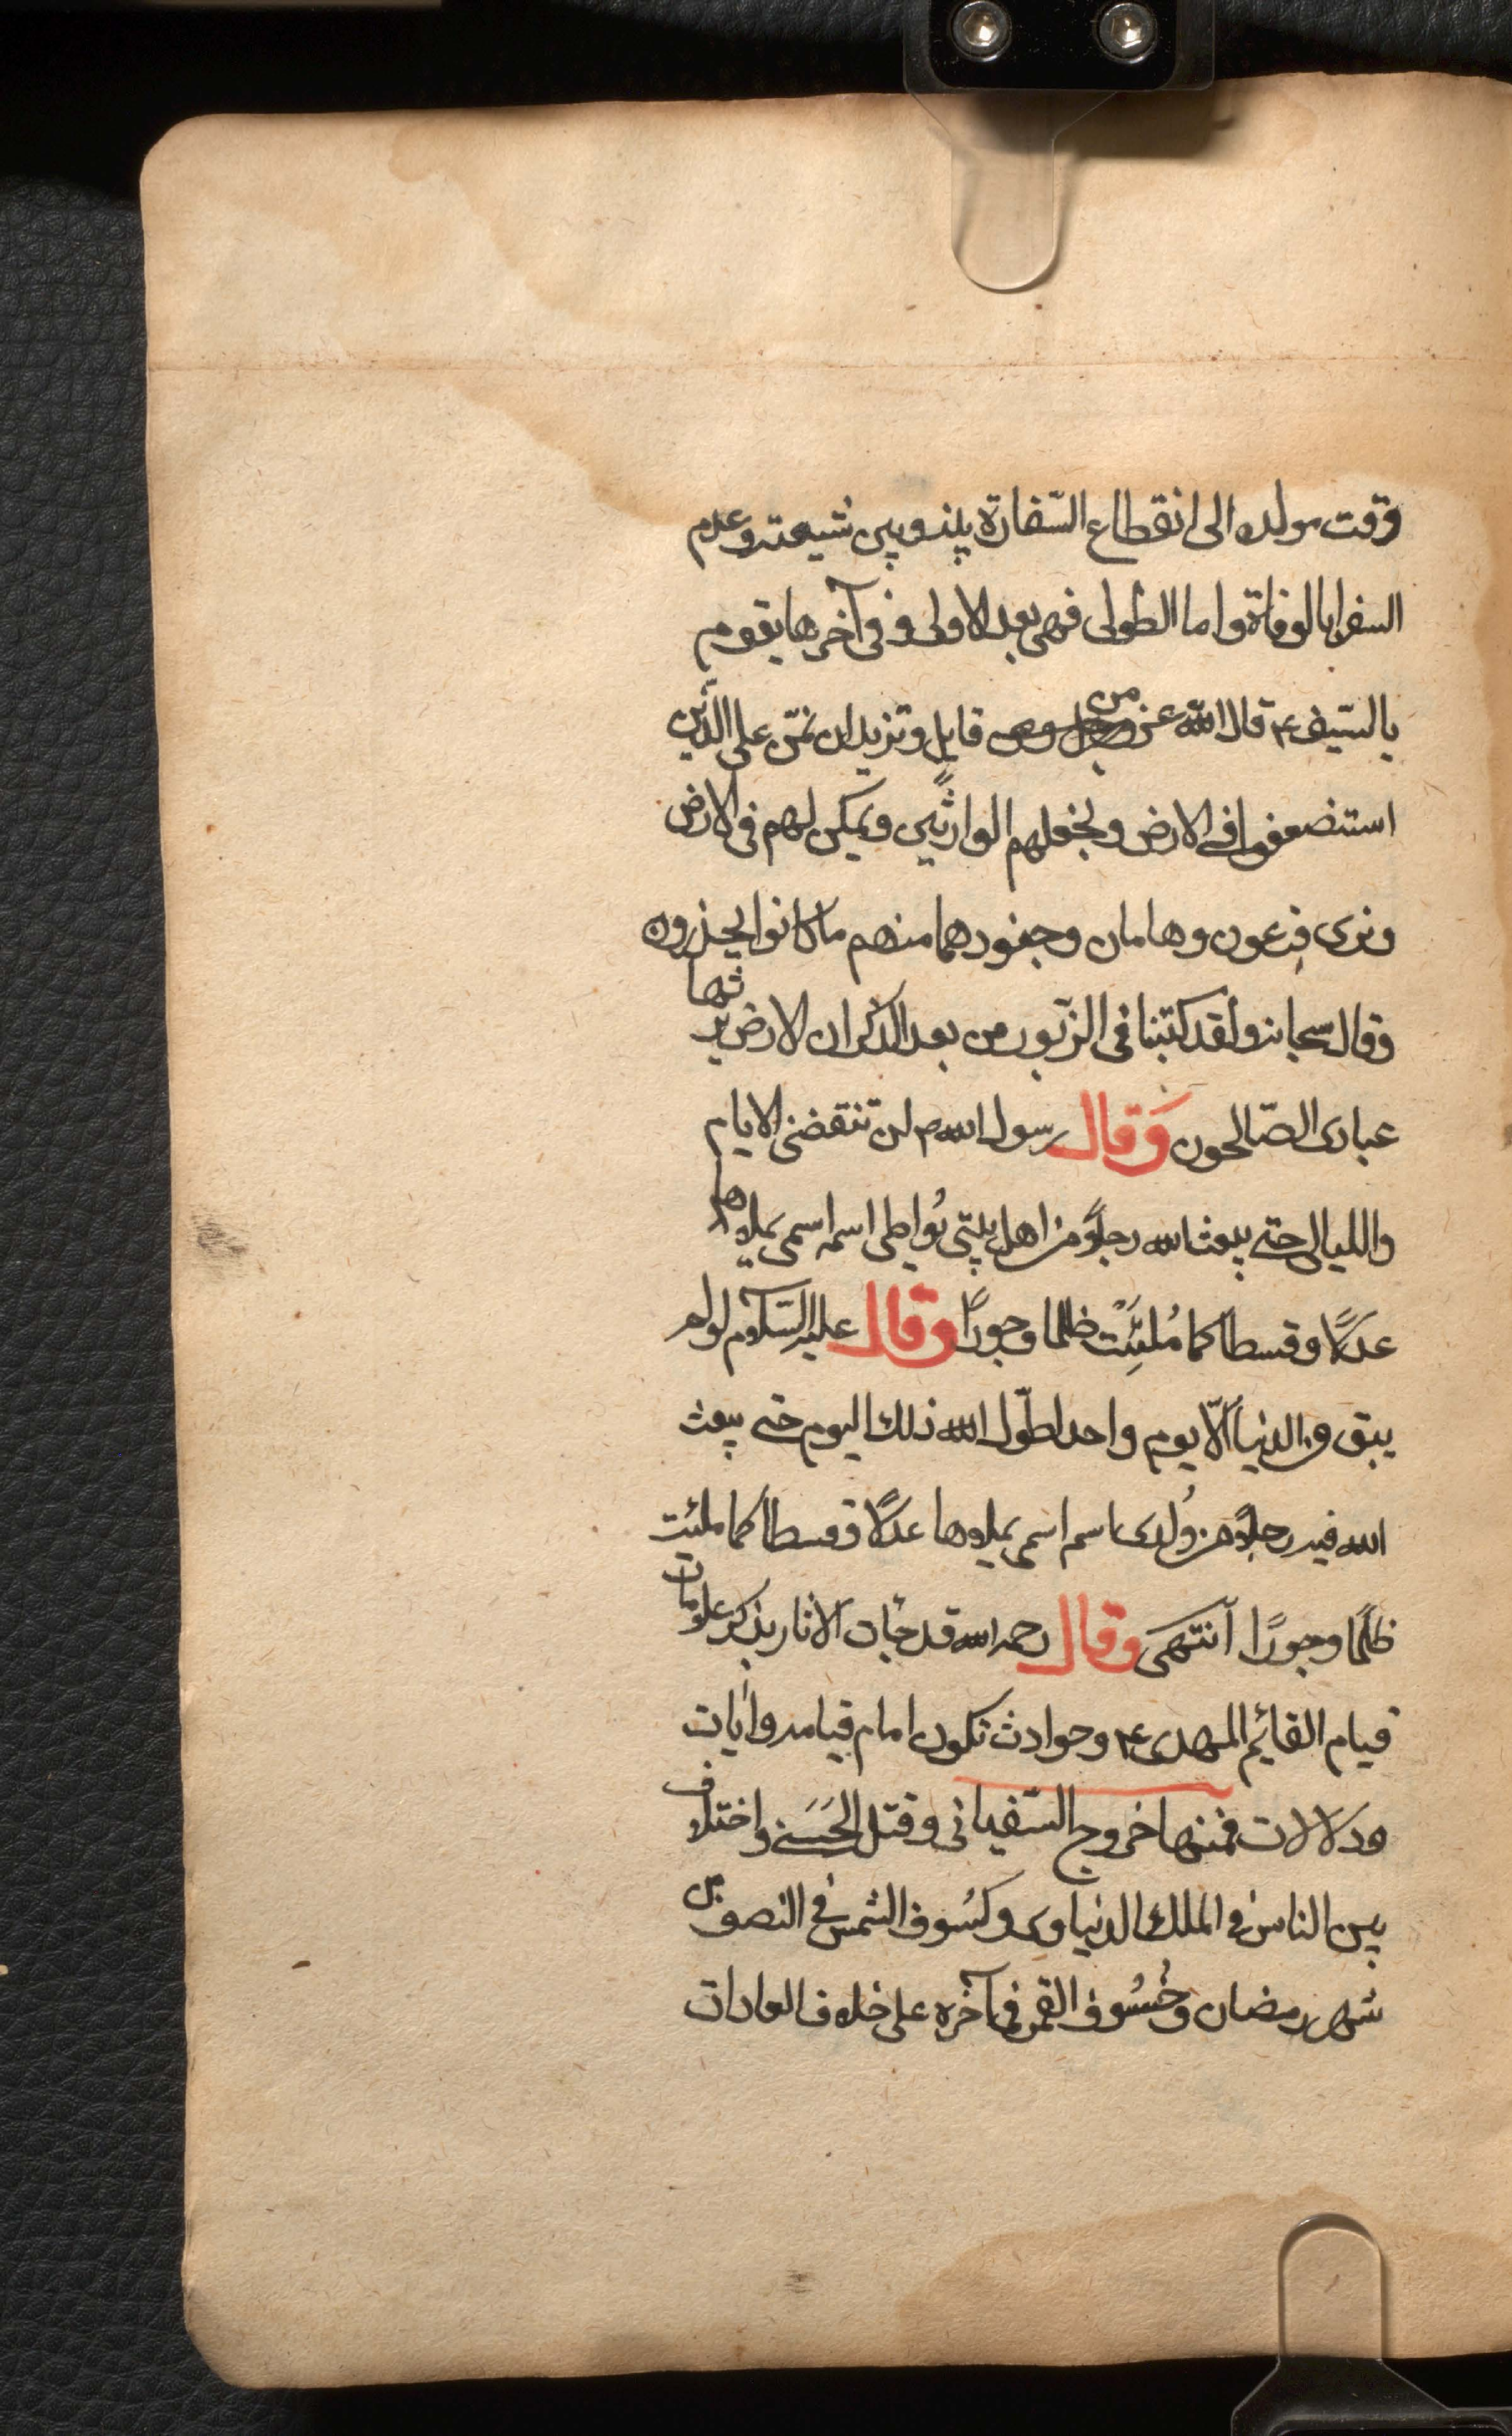 وقت مولده الى انقطاع السّفارة بينه وبين شيعته وعدم
السفرا بالوفاة واما الطولى فهى بعد الاولى وفى آخرها يقوم
بالسّيف ع قال الله عز من قايل ونريد ان نمنّ على الذين
استضعفوا فى الارض ونجعلهم الوارثين ونمكن لهم فى الارض
ونرى فرعون وهامان وجنودهما منهم ما كانوا يحذرون
وقال سبحانه ولقد كتبنا فى الزّبور من بعد الذكر ان الارض يرثها
عبادى الصّالحون وَقال رسول الله ص لن تنقضى الايام
والليالى حتى يبعث الله رجلًا من اهل بيتى يُواطى اسمه اسمى يملاوها
عدلًا وقسطا كما مُلِئَتْ ظلما وجورًا وقال عليه السّلام لو لم
يبق من الدنيا الّا يوم واحد لطوّل الله ذلك اليوم حتى يبعث
الله فيه رجلًا من وُلدى اسمه اسمى يملاوها عدلًا وقسطا كما ملئت
ظلمًا وجورًا آنتهى وقال رحمه الله قد جات الاثار بذكر علامات
قيام القائيم المهدى ع وحوادث تكون امام قيامه وايات
ودلالات فمنها خروج السّفيانى وقتل الحَسَنى واختلاف
بين الناس فى الملك الدنياوى وكسُوف الشمس فى النصف من
شهر رمضان وخُسُوف القمر فى آخره على خلاف العادات